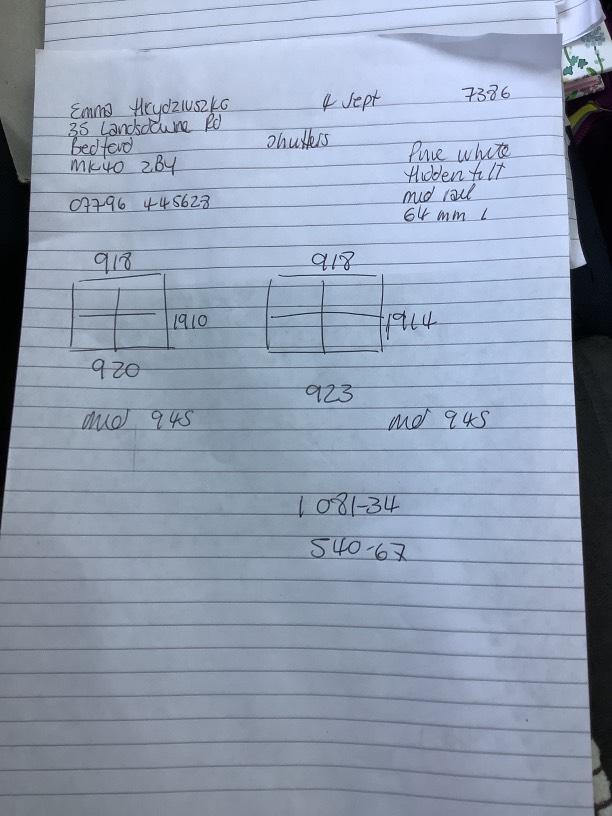 Emma Hrydziuszko 4 Sept 7386
35 Landsdowne Rd
Bedford Shutters
MK40 2BY Pure white
Hidden tilt
07796 445623 mid rail
64 mm L
918 918
1910 1914
920 923
mid 945 md 945
1 081-34
540-67